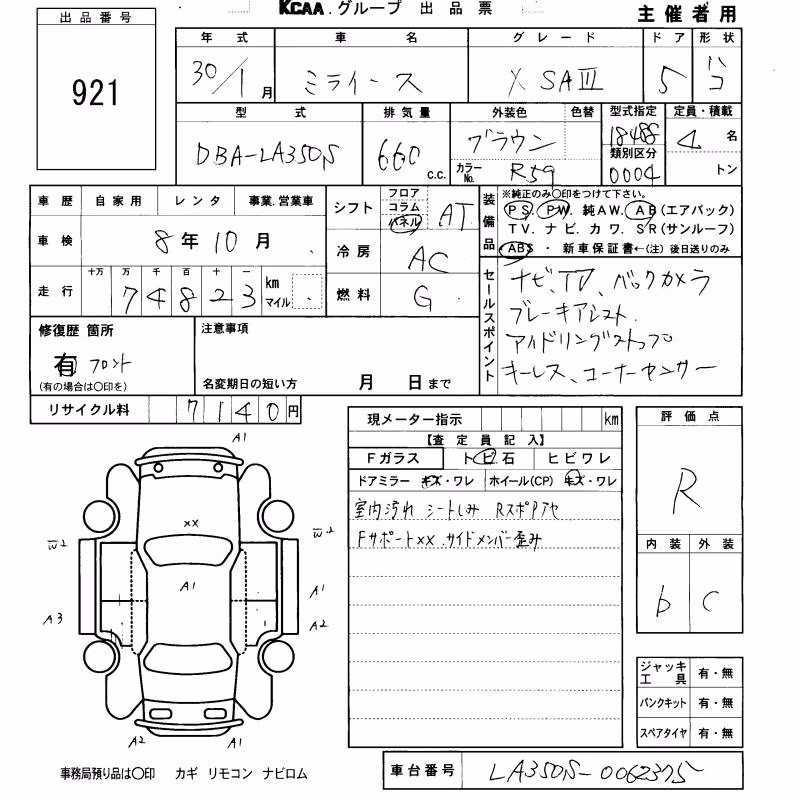 KCAA.グループ 出品票
主催者用
出品番号
921
年式 車名 グレード ドア 形状
30/1月 ミライース X SAⅢ 5 ハコ
型式 排気量 外装色 色替 型式指定 定員・積載
DBA-LA350S 660 c.c. ブラウン 18488 4名
カラーNo. R59 類別区分 0004 トン
車歴 自家用 レンタ 事業.営業車
車検 8年10月
走行 十万 万 千 百 十 一
74823 km マイル
シフト フロア コラム パネル AT
冷房 AC
燃料 G
装備品 ※純正のみ〇印をつけて下さい。
PS. PW. 純AW. AB(エアバック)
TV. ナビ. カワ. SR(サンルーフ)
ABS ・ 新車保証書←(注) 後日送りのみ
セールスポイント
ナビ、TV、バックカメラ
ブレーキアシスト
アイドリングストップ
キーレス、コーナーセンサー
修復歴 箇所
有 フロント
(有の場合は〇印を)
注意事項
名変期日の短い方 月 日まで
リサイクル料 7140円
現メーター指示 km
【査定員記入】
Fガラス トビ石 ヒビワレ
ドアミラー キズ・ワレ ホイール(CP) キズ・ワレ
室内汚れ シートしみ Rスポアヤ
Fサポートxx .サイドメンバー歪み
評価点
R
内装 外装
b C
ジャッキ工具 有・無
パンクキット 有・無
スペアタイヤ 有・無
A1
xx
W2 W2
A1 A1
A3 A2
A2 A1
事務局預り品は〇印 カギ リモコン ナビロム
車台番号 LA350S-0062375